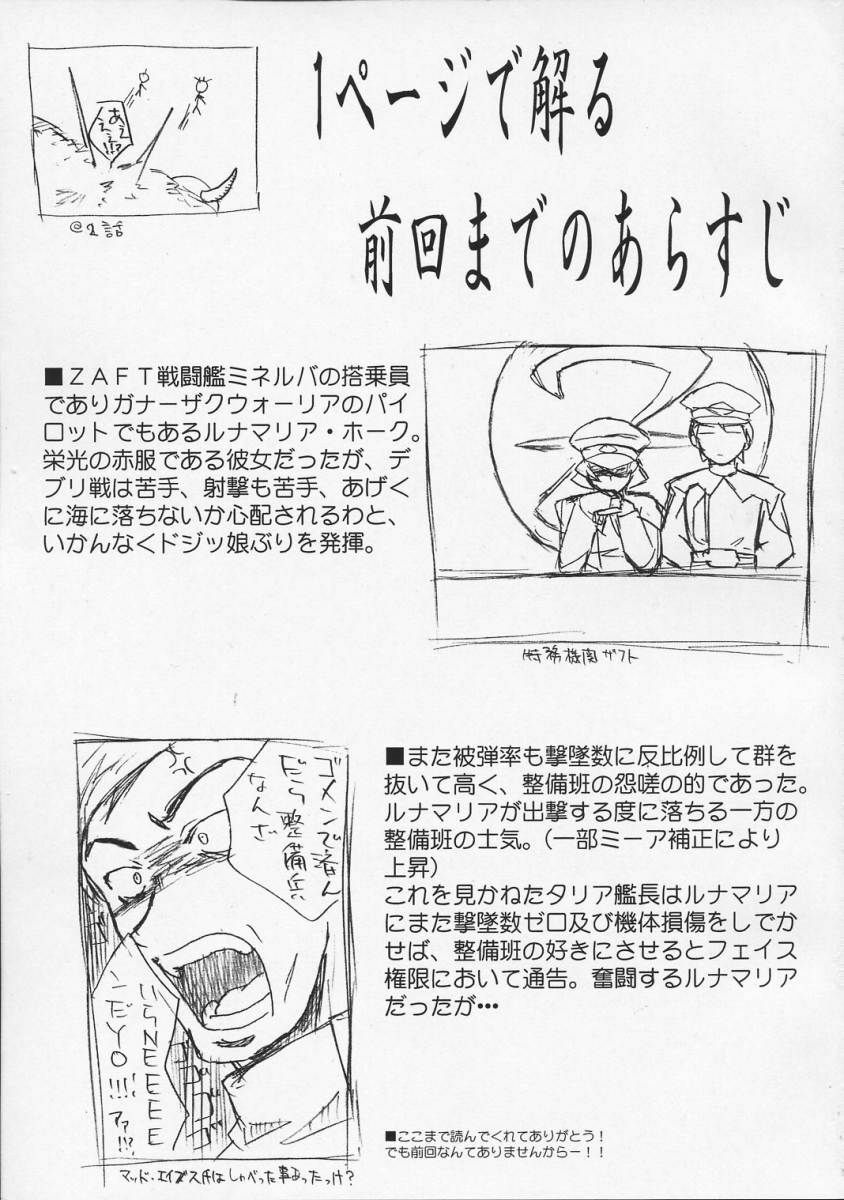 1ページで解る
前回までのあらすじ
あぇぇ!!?
@1話
■ZAFT戦闘艦ミネルバの搭乗員
でありガナーザクウォーリアのパイ
ロットでもあるルナマリア・ホーク。
栄光の赤服である彼女だったが、デ
ブリ戦は苦手、射撃も苦手、あげく
に海に落ちないか心配されるわと、
いかんなくドジッ娘ぶりを発揮。
特務機関ザフト
ゴメンで済ん
だら整備兵
なんざ
いらNEEEE
ンだYO!!!!
アァ!!?
マッド・エイブス氏はしゃべった事あったっけ?
■また被弾率も撃墜数に反比例して群を
抜いて高く、整備班の怨嗟の的であった。
ルナマリアが出撃する度に落ちる一方の
整備班の士気。(一部ミーア補正により
上昇)
これを見かねたタリア艦長はルナマリア
にまた撃墜数ゼロ及び機体損傷をしでか
せば、整備班の好きにさせるとフェイス
権限において通告。奮闘するルナマリア
だったが・・・
■ここまで読んでくれてありがとう!
でも前回なんてありませんからー!!